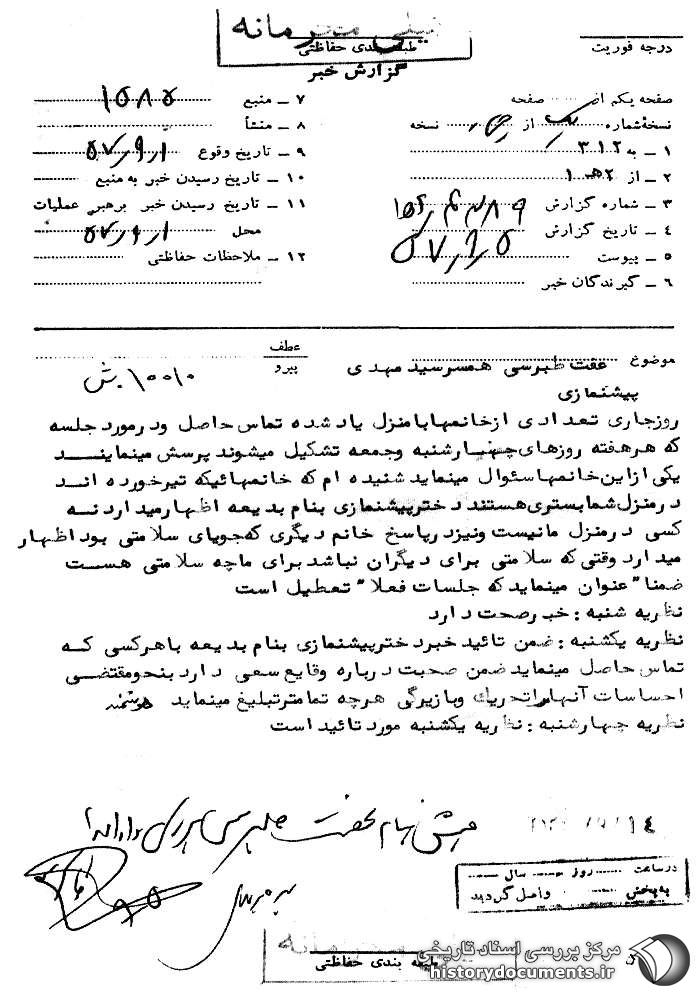 خیلی محرمانه
طبقه بندی حفاظتی
درجه فوریت
گزارش خبر
صفحه یکم از صفحه
نسخهٔ شماره یک از نسخه
۱ ـ به ۳۱۲
۲ ـ از ۲هـ۱
۳ ـ شماره گزارش
۴ ـ تاریخ گزارش
۵ ـ پیوست
۶ ـ گیرندگان خبر
۷ ـ منبع ۱۵۸۵
۸ ـ منشأ
۹ ـ تاریخ وقوع ۵۷٫۹٫۱
۱۰ ـ تاریخ رسیدن خبر به منبع
۱۱ ـ تاریخ رسیدن خبر برهبر عملیات
محل ۵۷٫۹٫۱
۱۲ ـ ملاحظات حفاظتی
موضوع عفت طبرسی همسر سید مهدی پیشنمازی
عطف
پیرو
روزجاری تعدادی ازخانمها بامنزل یاد شده تماس حاصل ودرمورد جلسه
که هرهفته روزهای چهارشنبه وجمعه تشکیل میشوند پرسش مینمایند
یکی ازاین خانمها سئوال مینماید شنیده ام که خانمهائیکه تیرخورده اند
درمنزل شما بستری هستند دخترپیشنمازی بنام بدیعه اظهارمیدارد نه
کسی درمنزل ما نیست ونیزدرپاسخ خانم دیگری که جویای سلامتی بود اظهار
میدارد وقتی که سلامتی برای دیگران نباشد برای ماچه سلامتی هست
ضمنا" عنوان مینماید که جلسات فعلا" تعطیل است
نظریه شنبه : خبر صحت دارد
نظریه یکشنبه : ضمن تائید خبر دخترپیشنمازی بنام بدیعه با هرکسی که
تماس حاصل مینماید ضمن صحبت درباره وقایع سعی دارد بنحومقتضی
احساسات آنهاراتحریك وبازیرگی هرچه تمامترتبلیغ مینماید هوشمند
نظریه چهارشنبه : نظریه یکشنبه مورد تائید است
۱۴
درساعت روز سال
به بخش واصل گردید
طبقه بندی حفاظتی
مرکز بررسی اسناد تاریخی
historydocuments.ir